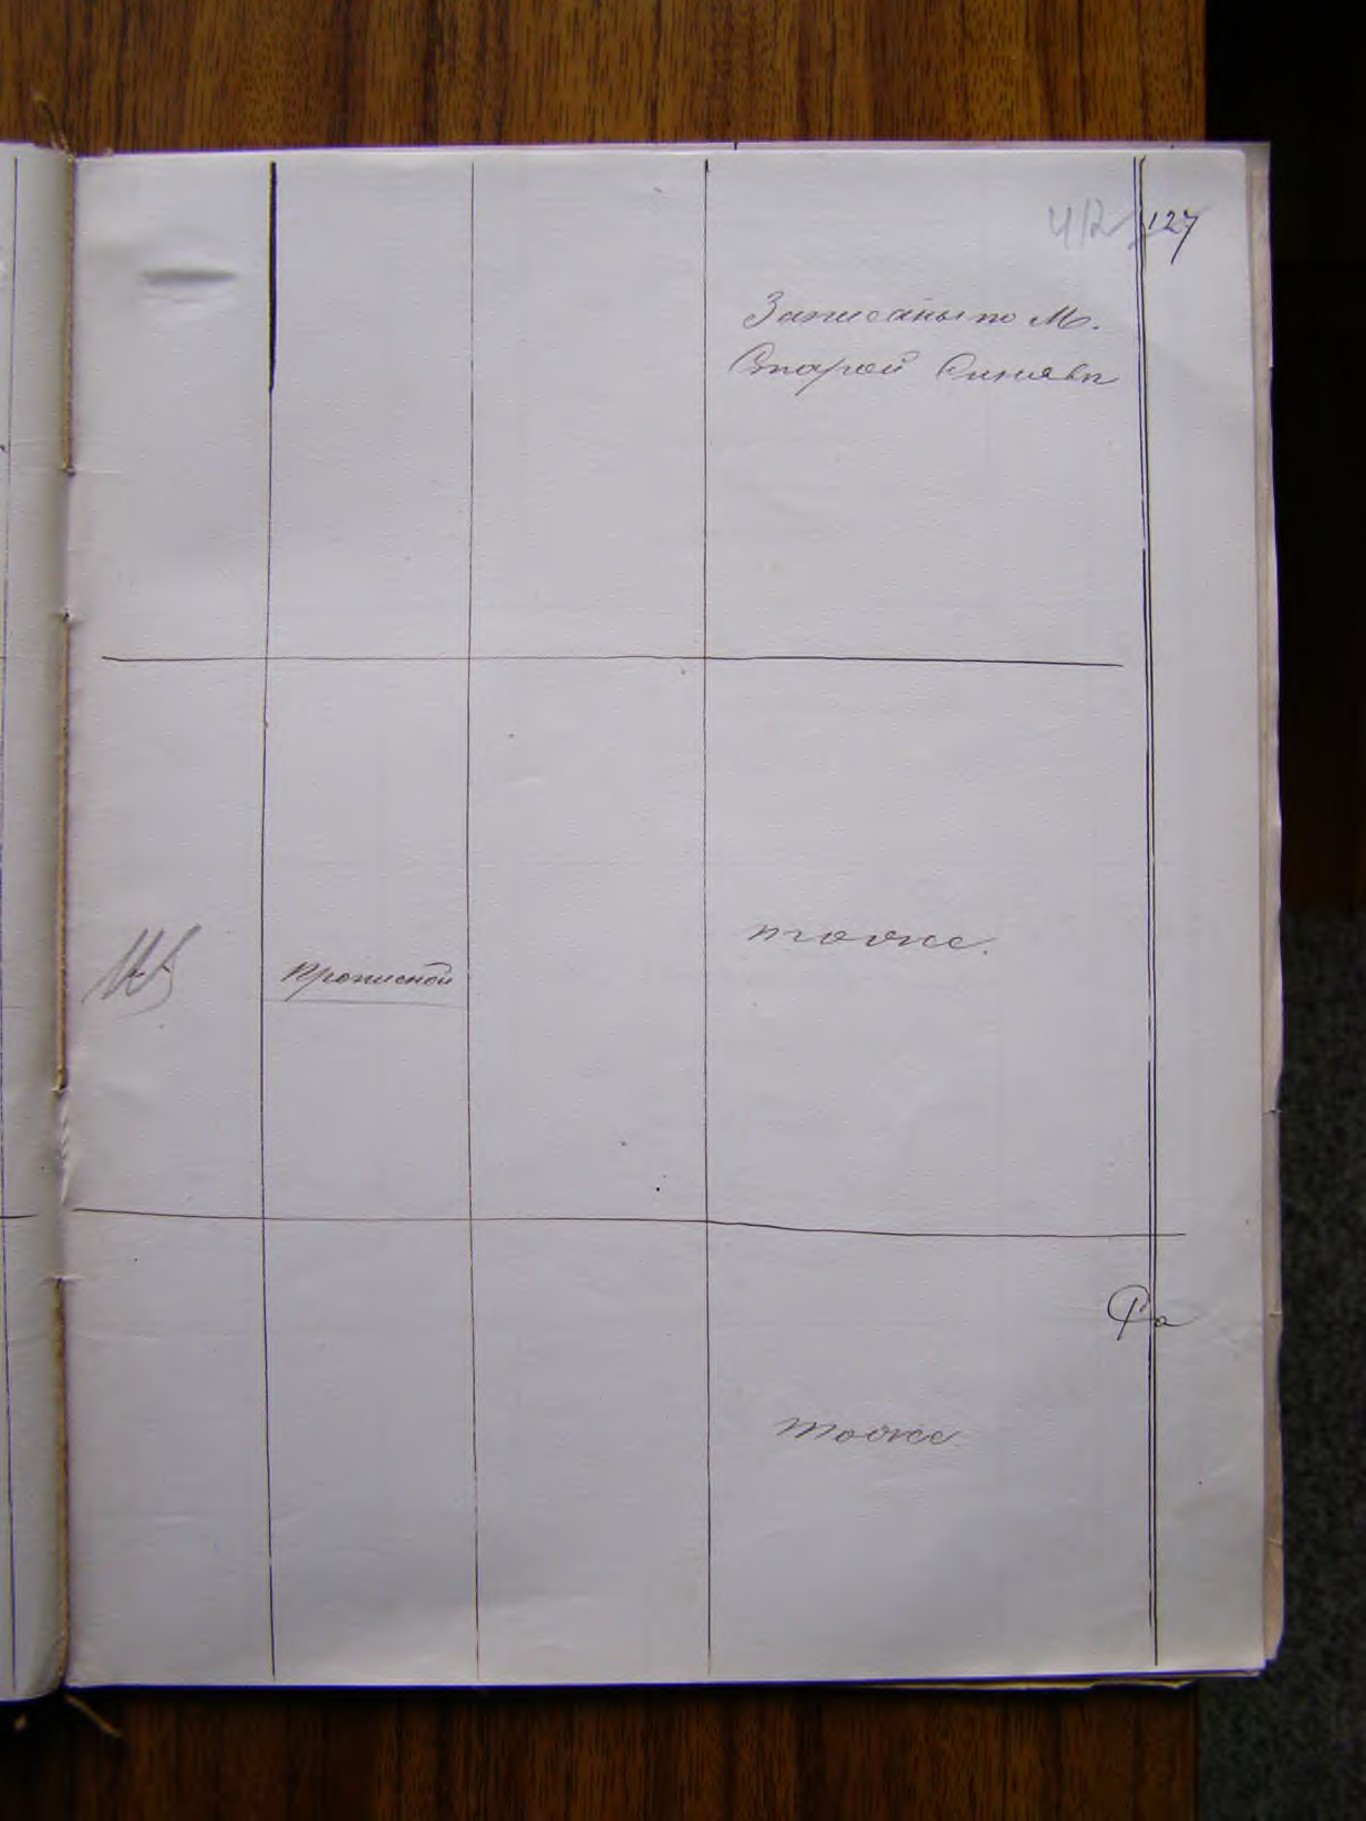 127
Записаны по М.
Старой Синяве
тоже.
прописной
тоже